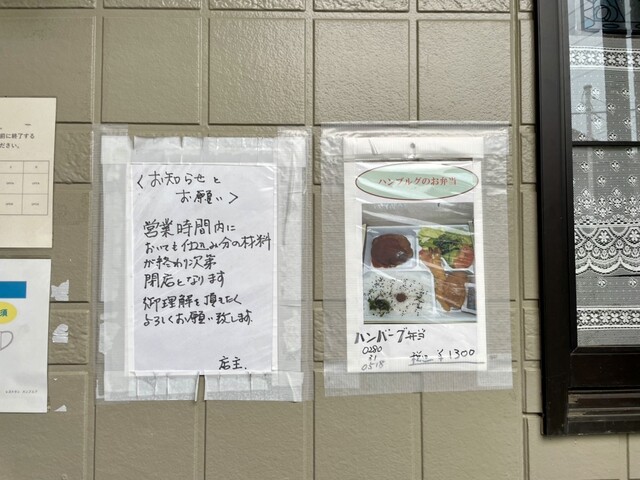 前に終了する
ださい。
<お知らせと
お願い>
営業時間内に
おいても仕込み分の材料
が終わり次第
閉店となります
御理解を頂きたく
よろしくお願い致します
店主.
ハンブルグのお弁当
ハンバーグ弁当
0280
31
0518
税込 ¥1300